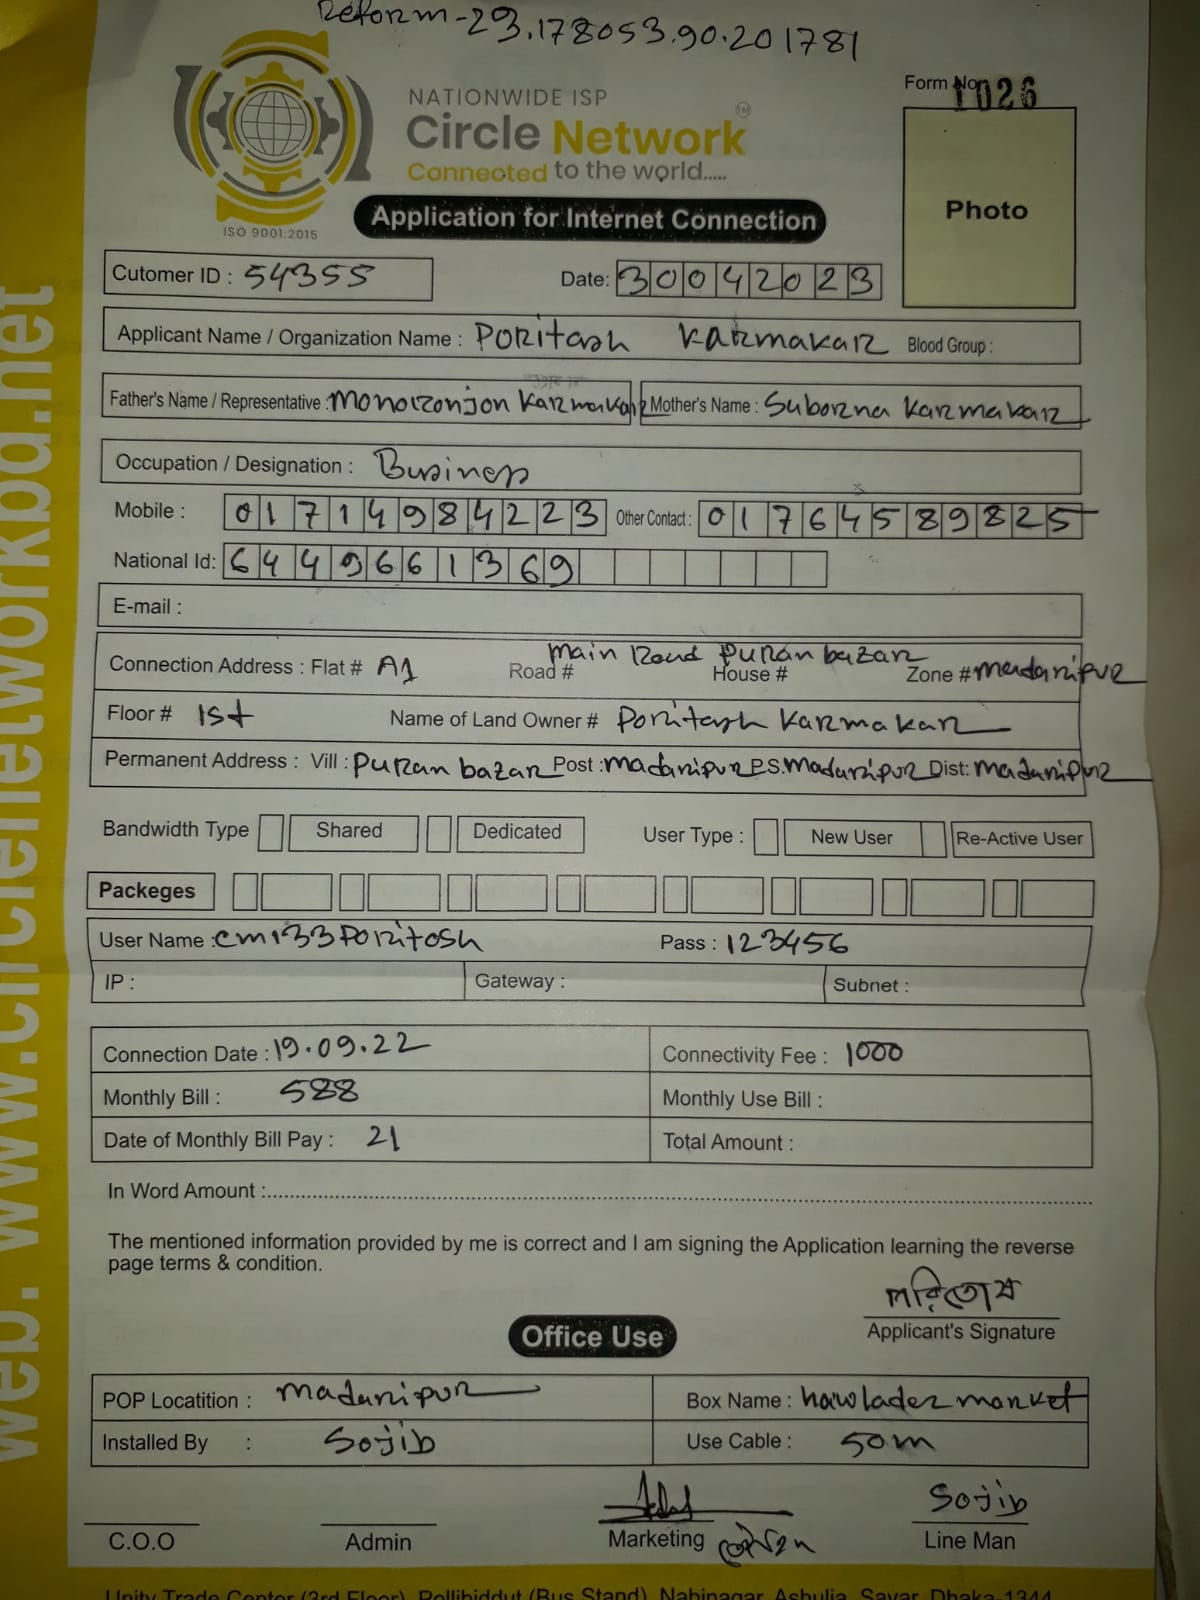 Reform-23.178053.90.201781
Form No. 1026
NATIONWIDE ISP
Circle Network TM
Connected to the world.....
Photo
ISO 9001:2015
Application for Internet Connection
Cutomer ID : 54355 Date: 30042023
Applicant Name / Organization Name : Poritash Karmakar Blood Group :
Father's Name / Representative : Monoronjon Karmakar Mother's Name : Suborna Karmakar
Occupation / Designation : Business
Mobile : 01714984223 Other Contact : 01764589825
National Id: 6449661369
E-mail :
Main Road Puran bazar
Connection Address : Flat # A1 Road # House # Zone # madaripur
Floor # 1st Name of Land Owner # Poritash Karmakar
Permanent Address : Vill : Puran bazar Post : madaripur P.S. madaripur Dist: madaripur
Bandwidth Type Shared Dedicated User Type : New User Re-Active User
Packeges
User Name : cm133Poritosh Pass : 123456
IP : Gateway : Subnet :
Connection Date : 19.09.22 Connectivity Fee : 1000
Monthly Bill : 588 Monthly Use Bill :
Date of Monthly Bill Pay : 21 Total Amount :
In Word Amount :
The mentioned information provided by me is correct and I am signing the Application learning the reverse
page terms & condition.
পরিতোষ
Applicant's Signature
Office Use
POP Locatition : madaripur Box Name : hawlader market
Installed By : Sojib Use Cable : 50m
Sojib
C.O.O Admin Marketing Line Man
Unity Trade Center (3rd Floor), Pollibiddut (Bus Stand), Nabinagar, Ashulia, Savar, Dhaka-1344
web: www.circlenetworkbd.net